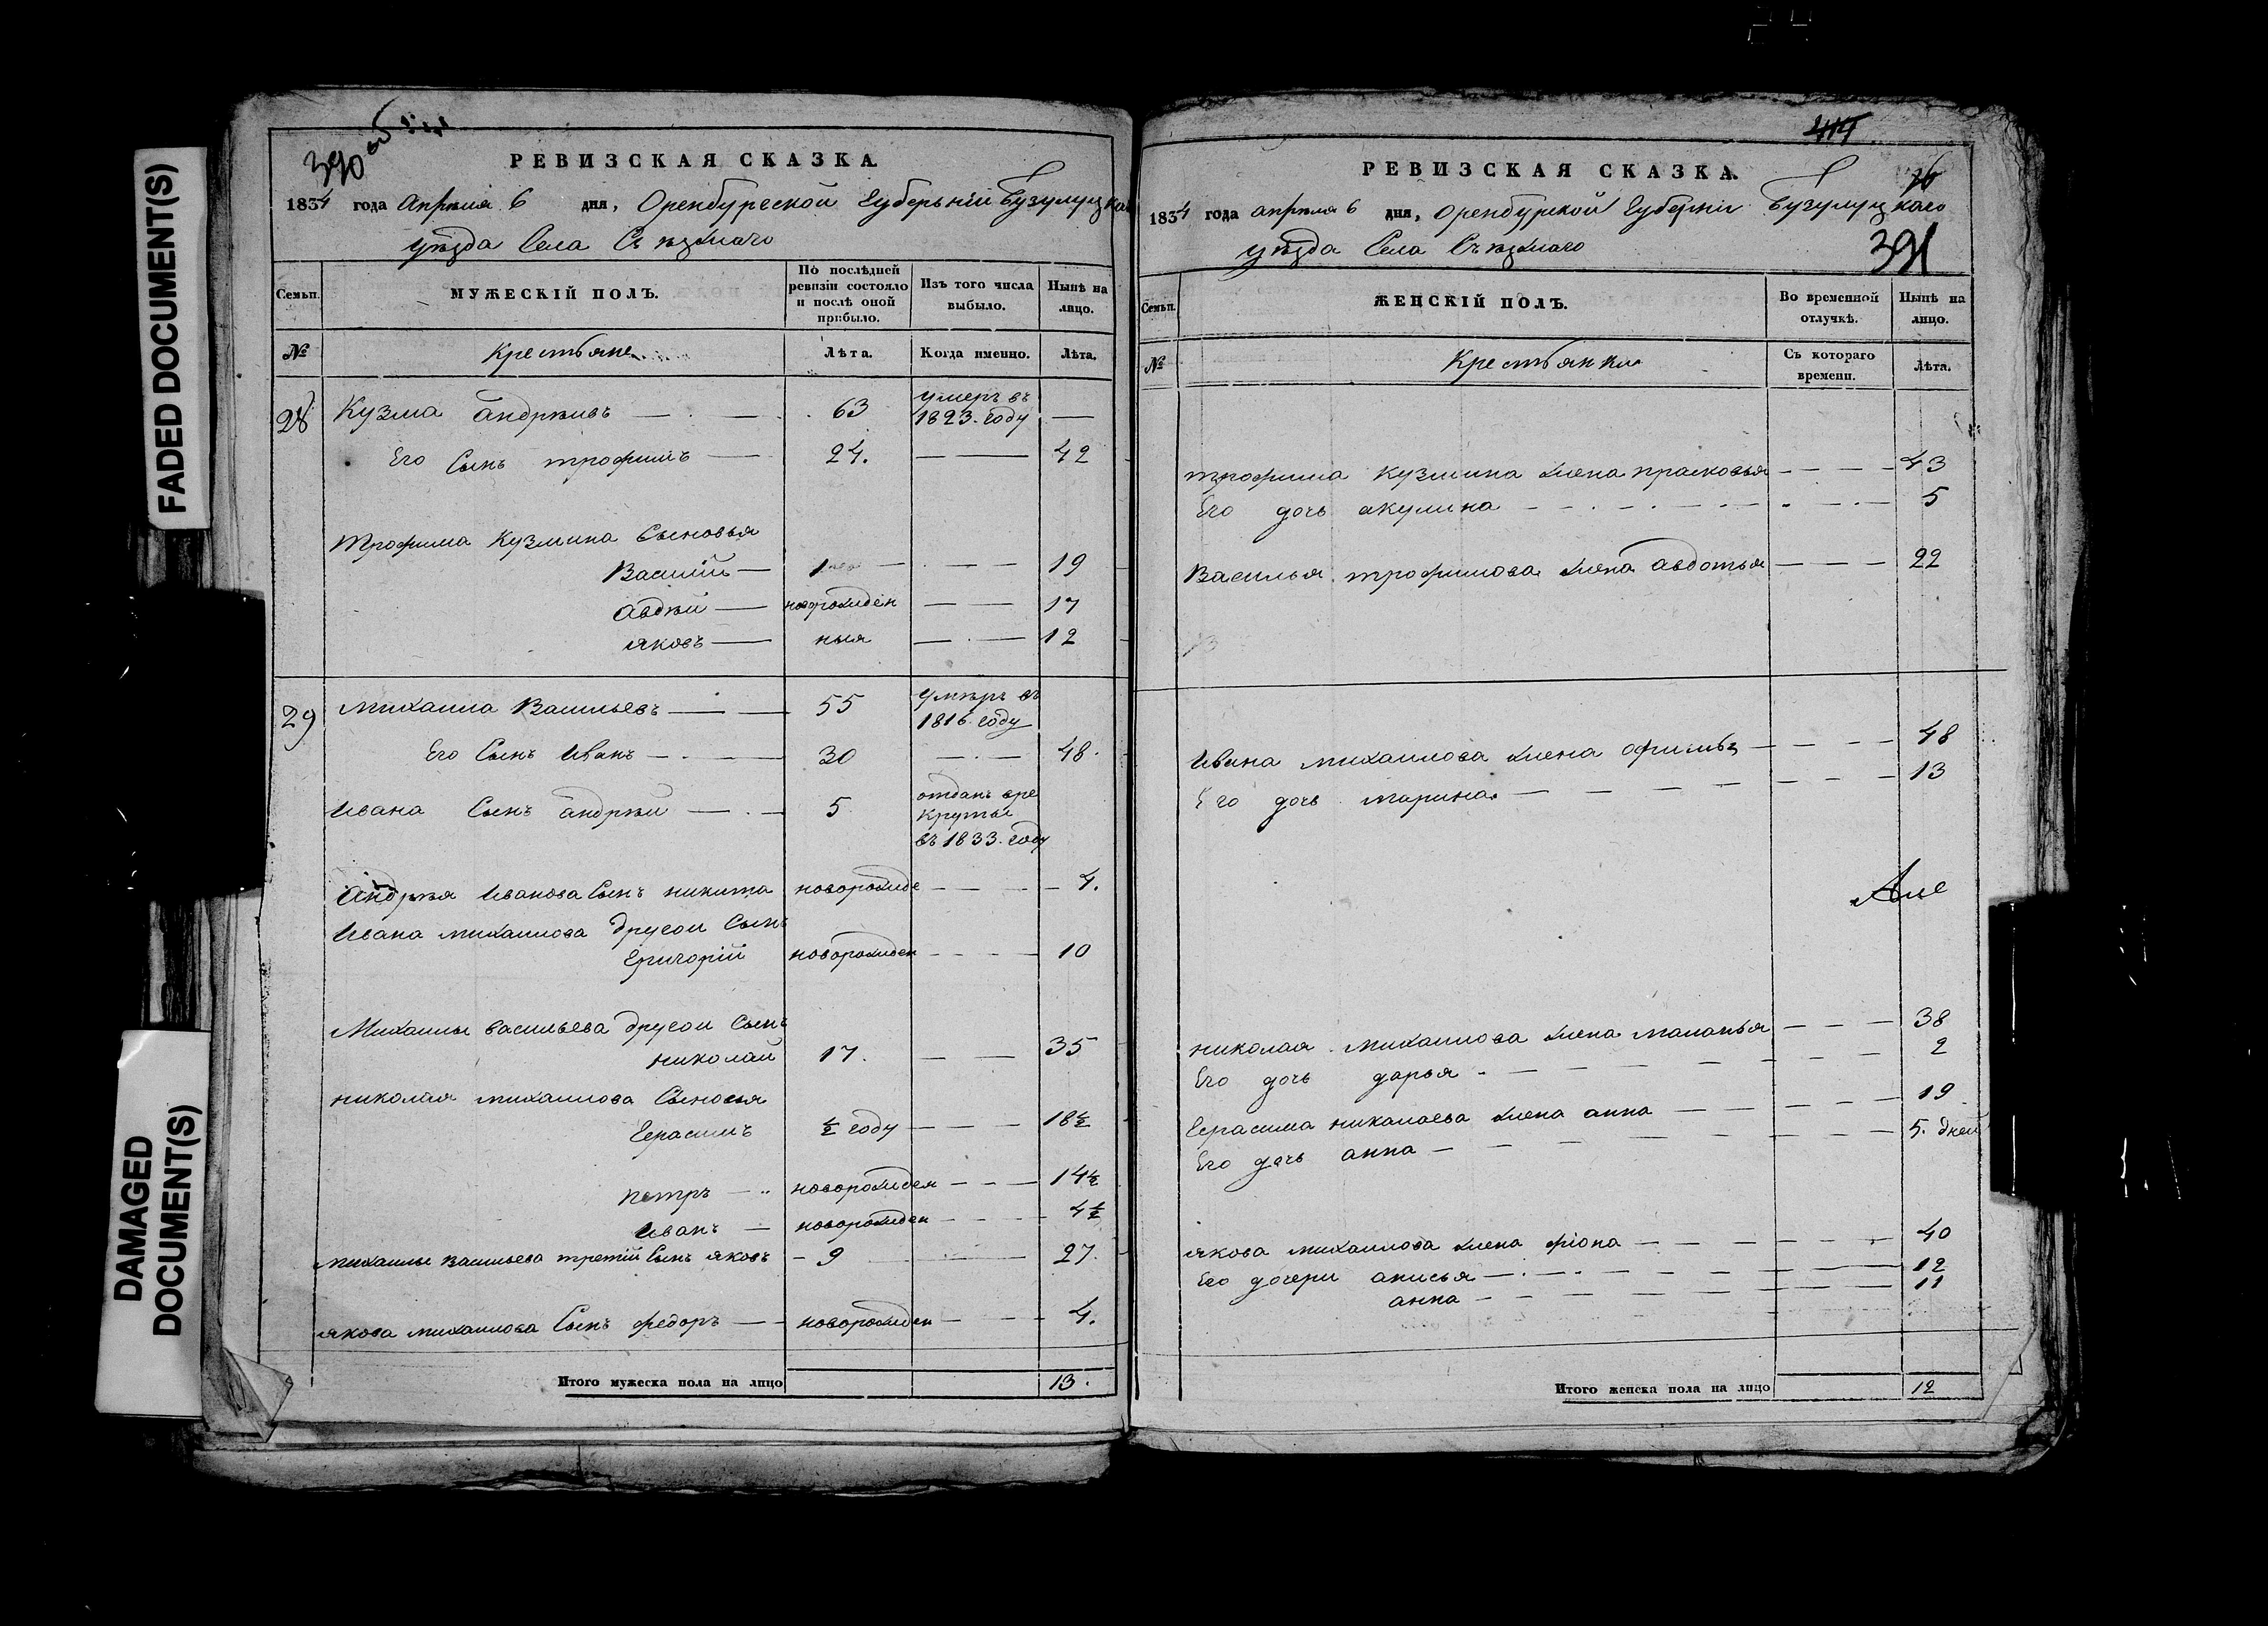 FADED DOCUMENT(S)
DAMAGED
DOCUMENT(S)
390 об
РЕВИЗСКАЯ СКАЗКА.
1834 года Апрѣля 6 дня, Оренбургской Губерніи Бузулуцкаго
уѣзда Села Съѣзжаго
Семьи.
МУЖЕСКІЙ ПОЛЪ.
По послѣдней ревизіи состояло и послѣ оной прибыло.
Изъ того числа выбыло.
Нынѣ на лицо.
№
Крестьяне
Лѣта.
Когда именно.
Лѣта.
28 Кузма андрѣивъ 63 умеръ въ 1823. году
Его Сынъ трофимъ 24. 42
Трофима Кузмина Сыновья
Василій 1 19
Авдѣй новорожден 17
яковъ ныя 12
29 михаила Васильевъ 55 умѣръ въ 1816 году
Его Сынъ Иванъ 30 48.
Ивана Сынъ андрѣй 5 отданъ вре круты въ 1833. году
Андрѣя Иванова Сынъ никита новорожде 4.
Ивана михаилова другои Сынъ
Григорій новорожден 10
Михаилы васильева другои Сынъ
николай 17. 35
николая михаилова Сыновья
Герасимъ ½ году 18½
петръ новорожден 14½
Иванъ новорожден 4½
михаилы Васильева третій Сынъ яковъ 9 27.
якова михаилова Сынъ федоръ новорожден 4.
Итого мужеска пола на лицо 13.
414
РЕВИЗСКАЯ СКАЗКА.
1834 года апрѣля 6 дня, Оренбургской Губерніи Бузулуцкаго
уѣзда Села Съѣзжаго
391
Семьи.
ЖЕНСКІЙ ПОЛЪ.
Во временной отлучкѣ.
Нынѣ на лицо.
№
Крестьянки
Съ котораго времени.
Лѣта.
трофима Кузмина жена прасковья 43
Его дочь акулина 5
Василья трофимова жена авдотья 22
Ивана михаилова жена 48
Его дочь марина 13
николая михаилова жена маланья 38
Его дочь дарья 2
Герасима николаева жена анна 19
Его дочь анна 5. дней
якова михаилова жена фіона 40
Его дочери анисья 12
анна 11
Итого женска пола на лицо 12